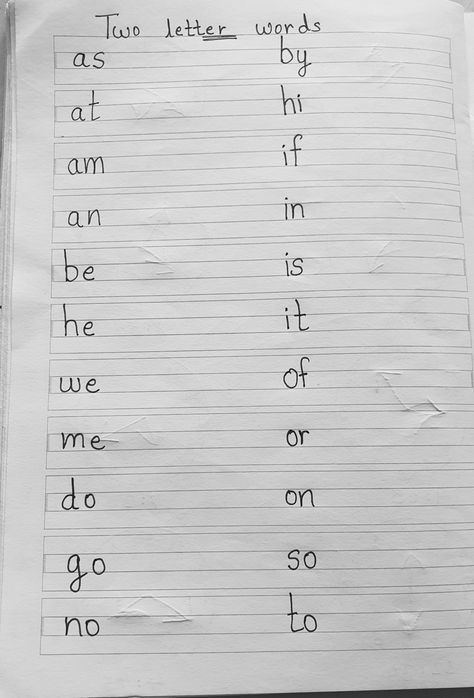 Two letter words
as by
at hi
am if
an in
be is
he it
we of
me or
do on
go so
no to